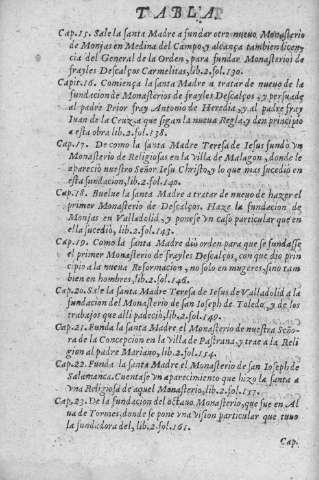 TABLA
Cap.15. Sale la santa Madre a fundar otro nueuo Monasterio
de Monjas en Medina del Campo, y alcança tambien licen
cia del General de la Orden, para fundar Monasterios de
frayles Descalços Carmelitas, lib.2.fol.130.
Capit.16. Comiença la santa Madre a tratar de nueuo de la
fundacion de Monasterios de frayles Descalços, y persuade
al padre Prior fray Antonio de Heredia, y al padre fray
Iuan de la Cruz a que sigan la nueua Regla, y dan principio
a esta obra lib.2.fol.138.
Cap.17. De como la santa Madre Teresa de Iesus fundò vn
Monasterio de Religiosas en la Villa de Malagon, donde le
apareciò nuestro Señor Iesu Christo, y lo que mas sucediò en
esta fundacion, lib.2.fol.140.
Cap.18. Buelue la santa Madre a tratar de nueuo de hazer el
primer Monasterio de Descalços. Haze la fundacion de
Monjas en Valladolid, y ponese vn caso particular que en
ella sucediò, lib.2.fol.143.
Cap.19. Como la santa Madre diò orden para que se fundasse
el primer Monasterio de frayles Descalços, con que dio prin
cipio a la nueua Reformacion, no solo en mugeres, sino tam
bien en hombres, lib.2.fol.146.
Cap.20. Sale la santa Madre Teresa de Iesus de Valladolid a la
fundacion del Monasterio de san Ioseph de Toledo, y de los
trabajos que alli padeciò, lib.2.fol.149.
Cap.21. Funda la santa Madre el Monasterio de nuestra Seño
ra de la Concepcion en la Villa de Pastrana, y trae a la Reli
gion al padre Mariano, lib.2.fol.154.
Cap.22. Funda la santa Madre el Monasterio de san Ioseph de
Salamanca. Cuentase vn aparecimiento que hizo la santa a
vna Religiosa de aquel Monasterio, lib.2.fol.157.
Cap.23. De la fundacion del octauo Monasterio, que fue en Al
ua de Tormes, donde se pone vna vision particular que tuuo
la fundadora del, lib.2.fol.161.
Cap.